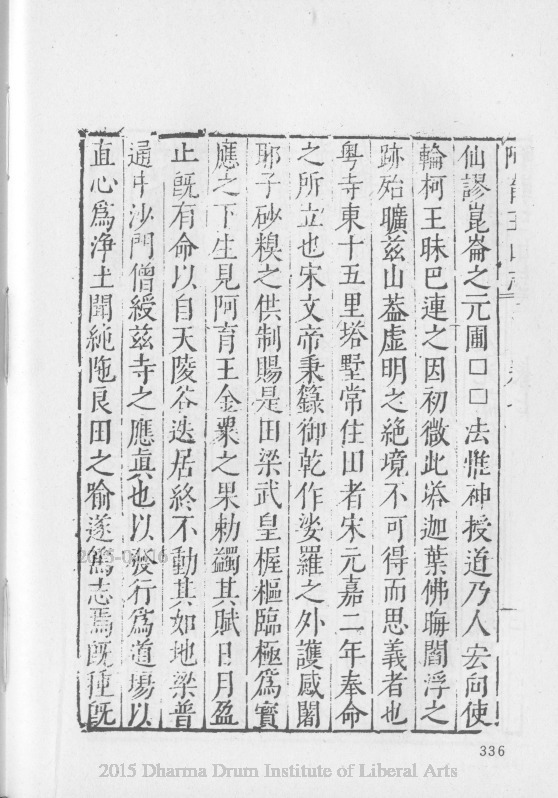 仙謬崑崙之元圃□□去惟神授道乃人宏向使
輪柯王昧巴連之因初微此塔迦葉佛晦閻浮之
跡殆曠茲山葢虛明之絶境不可得而思義者也
粤寺東十五里塔墅常住田者宋元嘉二年奉命
之所立也宋文帝秉籙御乾作娑羅之外護感闍
耶子砂糗之供制賜是田梁武皇握樞臨極爲實
應之下生見阿育王金粟之果勑蠲其賦日月盈
止旣有命以自天陵谷迭居終不動其如地梁普
通中沙門僧綬茲寺之應眞也以發行爲道場以
直心爲淨土聞純陁良田之喻遂篤志焉旣種旣
336
2015 Dharma Drum Institute of Liberal Arts